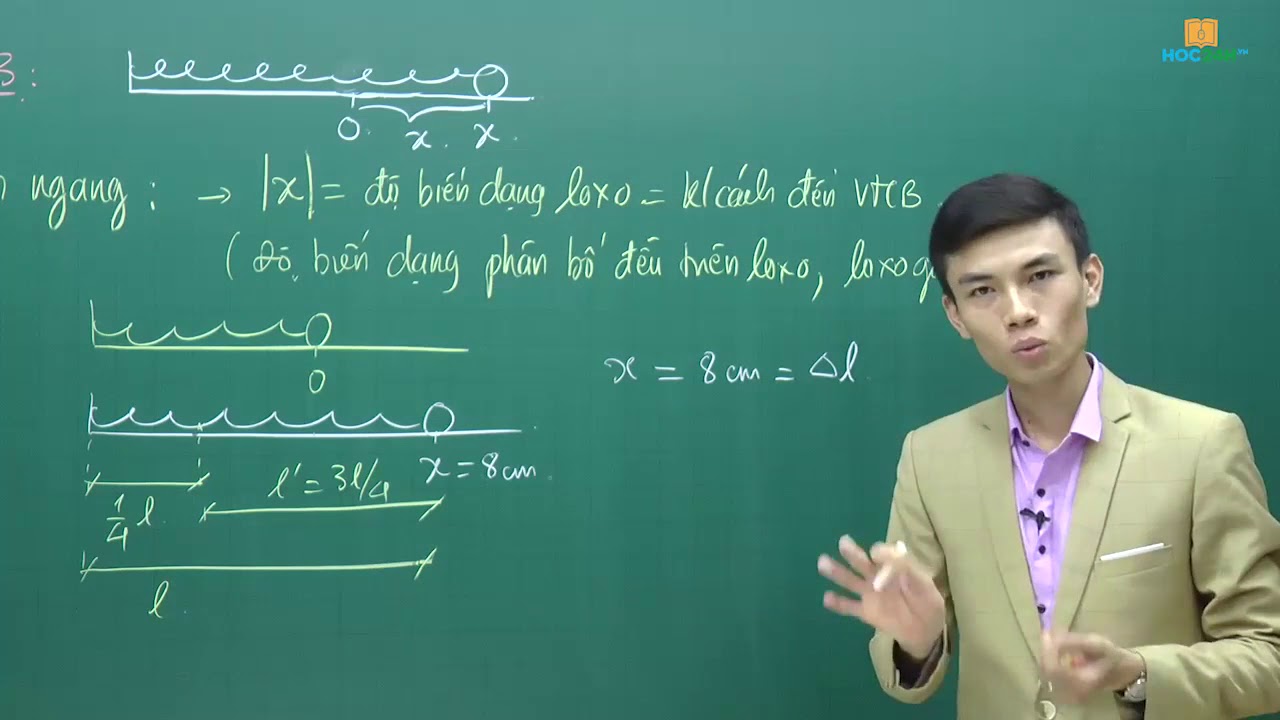 B:
O x x
ngang: → |x| = độ biến dạng lò xo = k/cách đến VTCB.
(Độ biến dạng phân bố đều trên lò xo, lò xo
O
x = 8 cm = Δl
x = 8 cm.
1/4 l. l' = 3l/4
l.
HOC
.VN